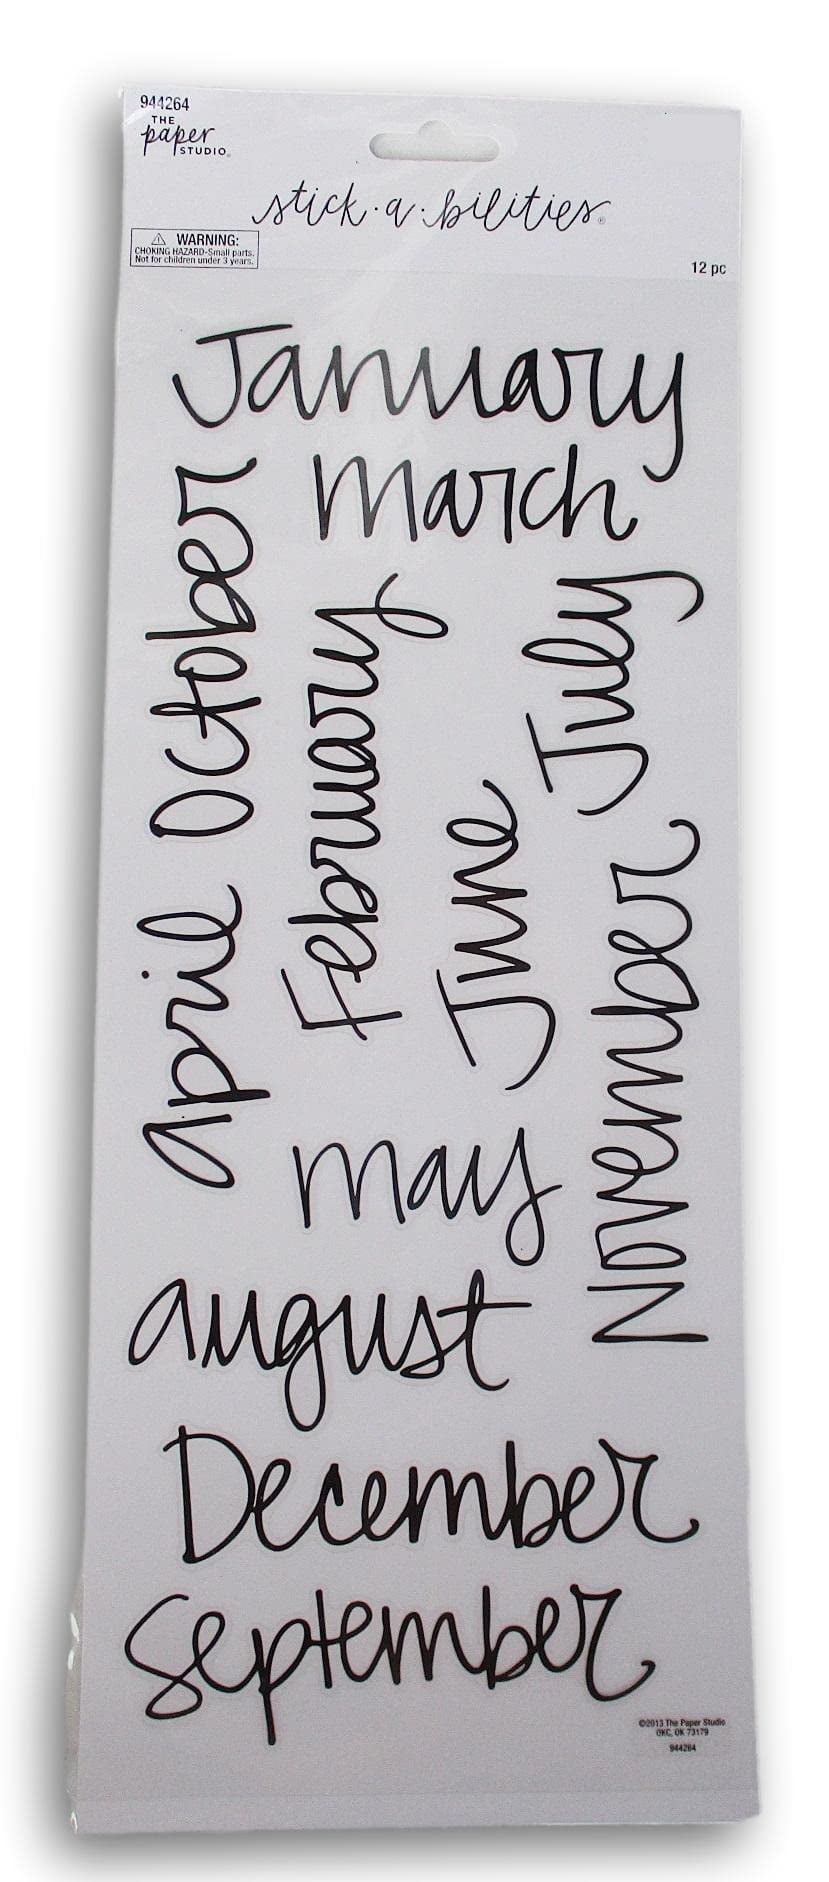 944264
THE
paper
STUDIO
stick·a·bilities®
WARNING:
CHOKING HAZARD-Small parts.
Not for children under 3 years.
12 pc
January
March
October
February
July
June
April
November
may
august
December
September
©2013 The Paper Studio
OKC, OK 73179
944264